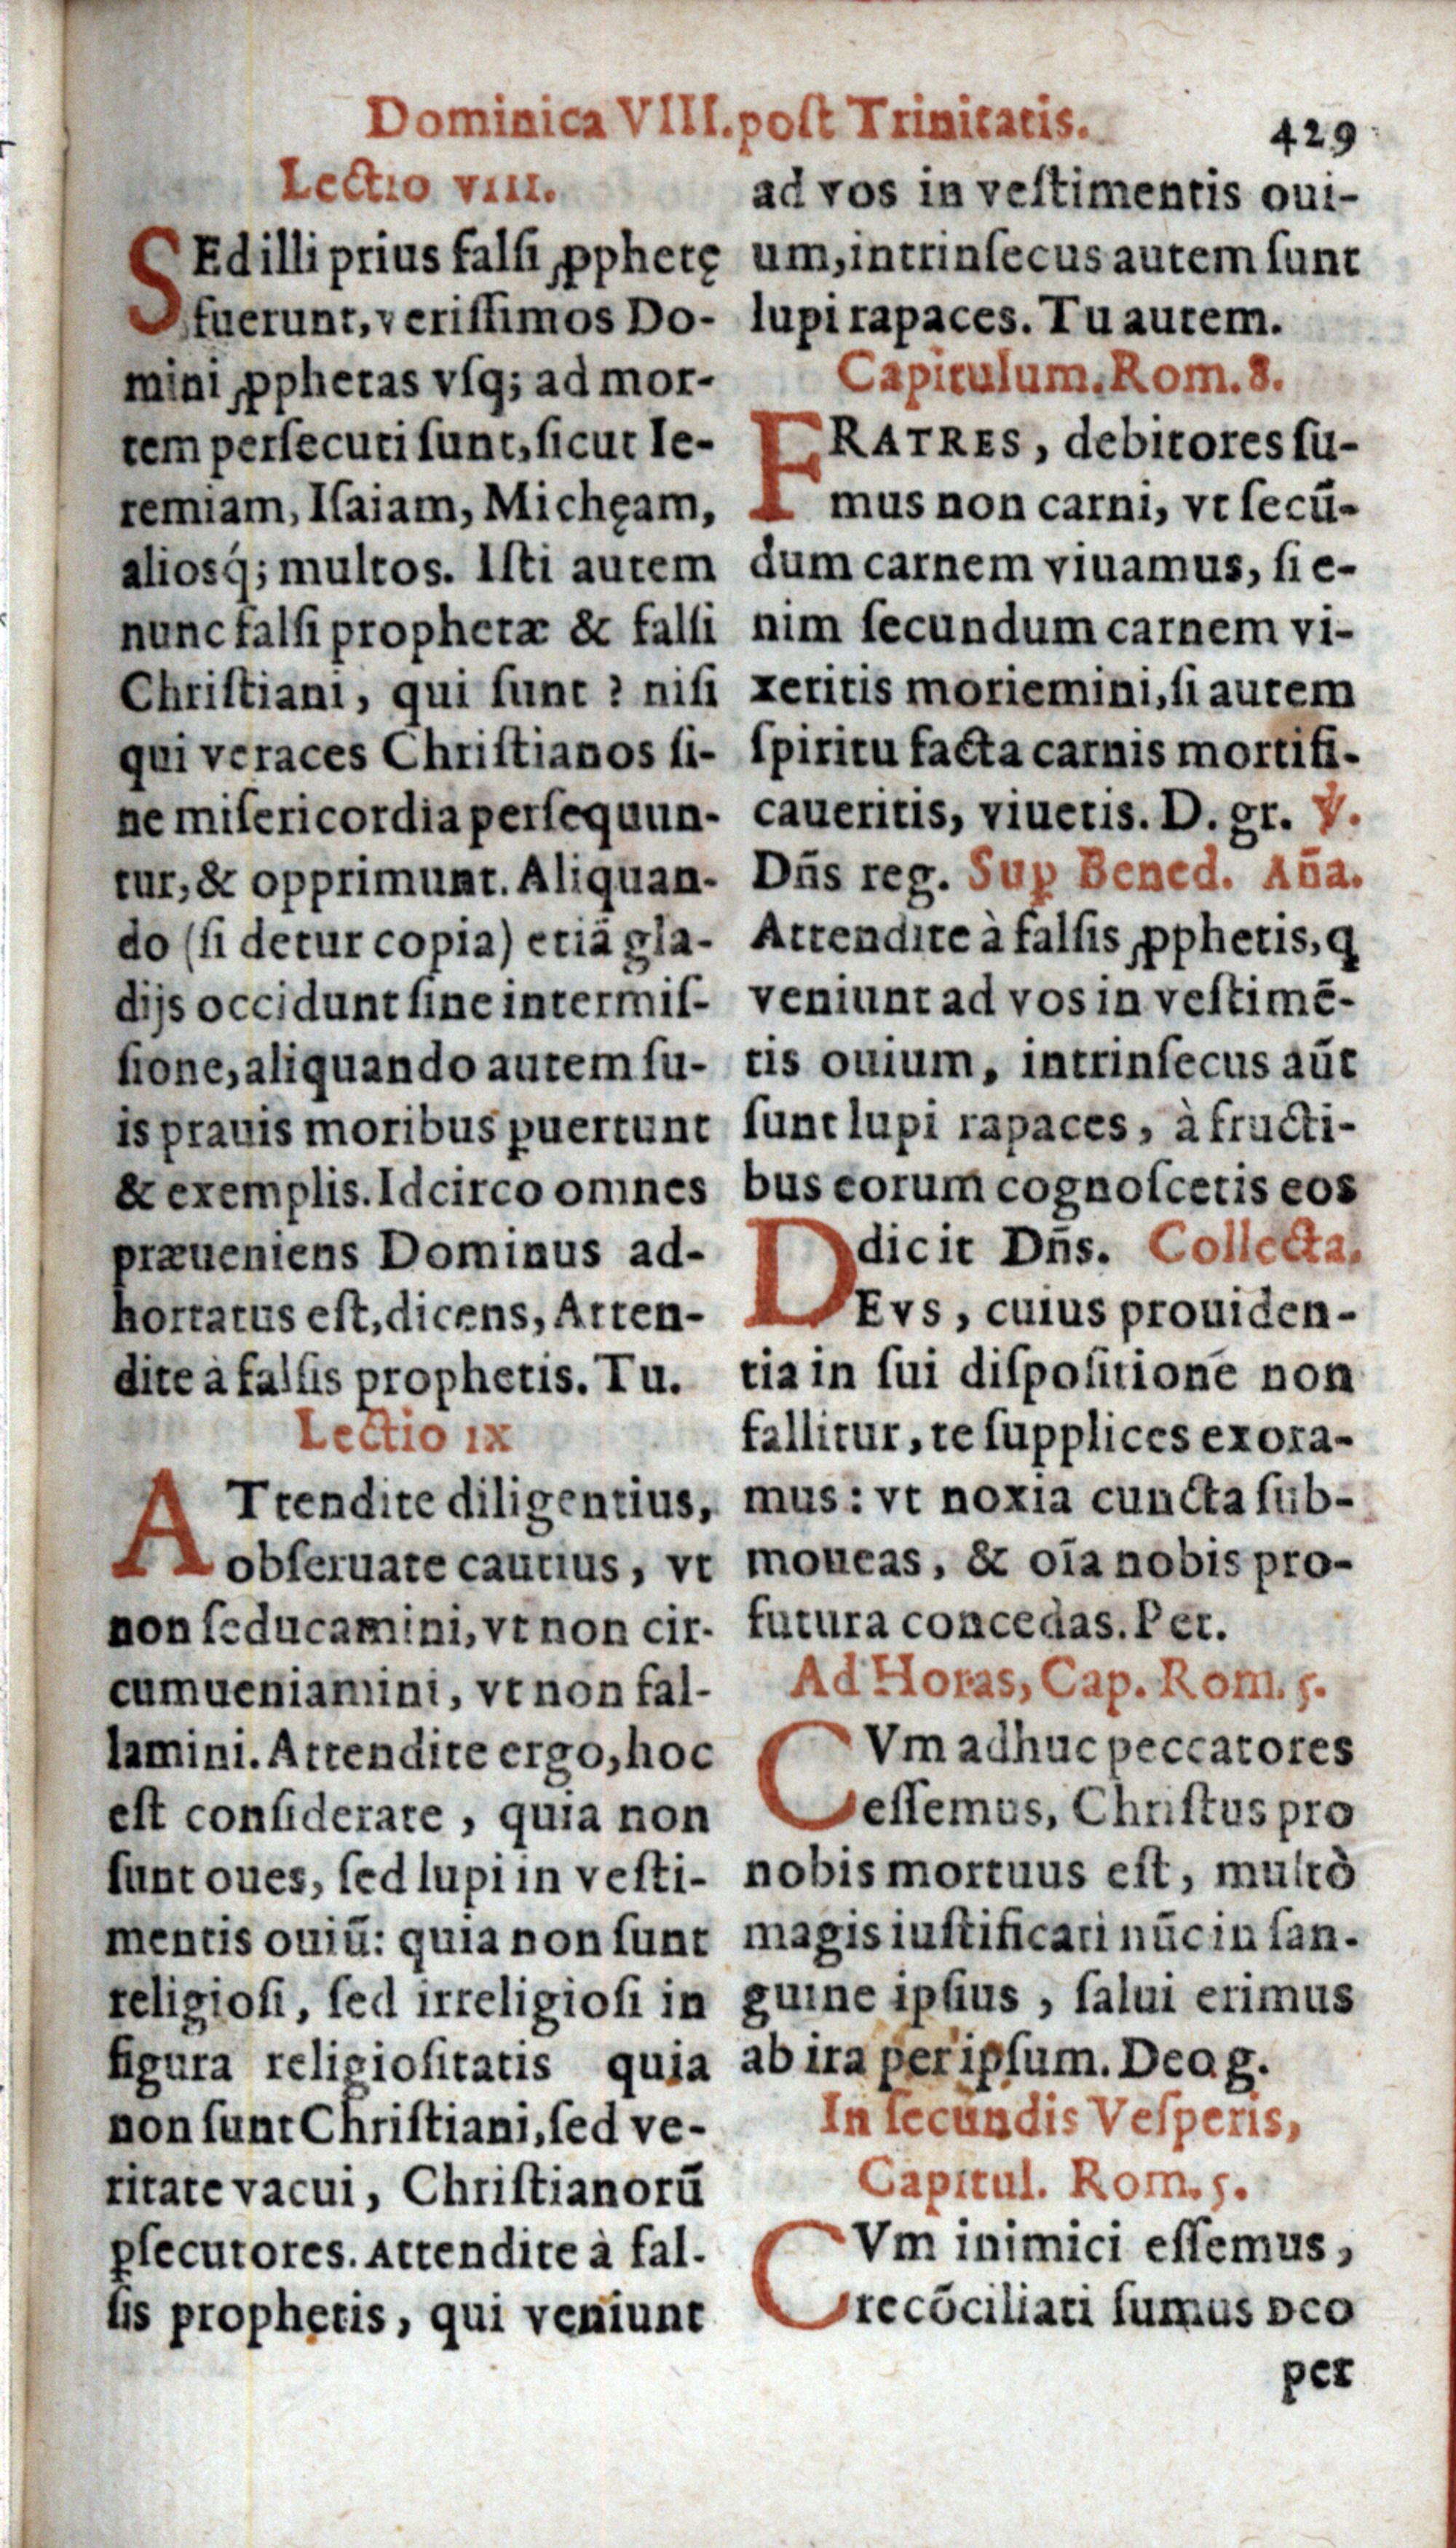 Dominica VIII. post Trinitatis.
429
Lectio VIII.
SEd illi prius falsi ꝓphetę
fuerunt, verissimos Do-
mini ꝓphetas vsq; ad mor-
tem persecuti sunt, sicut Ie-
remiam, Isaiam, Michęam,
aliosq́; multos. Isti autem
nunc falsi prophetæ & falsi
Christiani, qui sunt ? nisi
qui veraces Christianos si-
ne misericordia persequun-
tur, & opprimunt. Aliquan-
do (si detur copia) etiã gla-
dijs occidunt sine intermis-
sione, aliquando autem su-
is prauis moribus ꝑuertunt
& exemplis. Idcirco omnes
præueniens Dominus ad-
hortatus est, dicens, Atten-
dite à falsis prophetis. Tu.
Lectio IX
ATtendite diligentius,
obseruate cautius, vt
non seducamini, vt non cir-
cumueniamini, vt non fal-
lamini. Attendite ergo, hoc
est considerate, quia non
sunt oues, sed lupi in vesti-
mentis ouiũ: quia non sunt
religiosi, sed irreligiosi in
figura religiositatis quia
non sunt Christiani, sed ve-
ritate vacui, Christianorũ
ꝑsecutores. Attendite à fal-
sis prophetis, qui veniunt
ad vos in vestimentis oui-
um, intrinsecus autem sunt
lupi rapaces. Tu autem.
Capitulum. Rom. 8.
FRATRES, debitores su-
mus non carni, vt secũ-
dum carnem viuamus, si e-
nim secundum carnem vi-
xeritis moriemini, si autem
spiritu facta carnis mortifi-
caueritis, viuetis. D. gr. ℣.
Dñs reg. Suꝑ Bened. Aña.
Attendite à falsis ꝓphetis, q
veniunt ad vos in vestimẽ-
tis ouium, intrinsecus aũt
sunt lupi rapaces, à fructi-
bus eorum cognoscetis eos
dicit Dñs. Collecta.
DEvs, cuius prouiden-
tia in sui dispositione non
fallitur, te supplices exora-
mus: vt noxia cuncta sub-
moueas, & oĩa nobis pro-
futura concedas. Per.
Ad Horas, Cap. Rom. 5.
CVm adhuc peccatores
essemus, Christus pro
nobis mortuus est, multò
magis iustificati nũc in san-
guine ipsius, salui erimus
ab ira per ipsum. Deo g.
In secundis Vesperis,
Capitul. Rom. 5.
CVm inimici essemus,
recõciliati sumus Deo
per